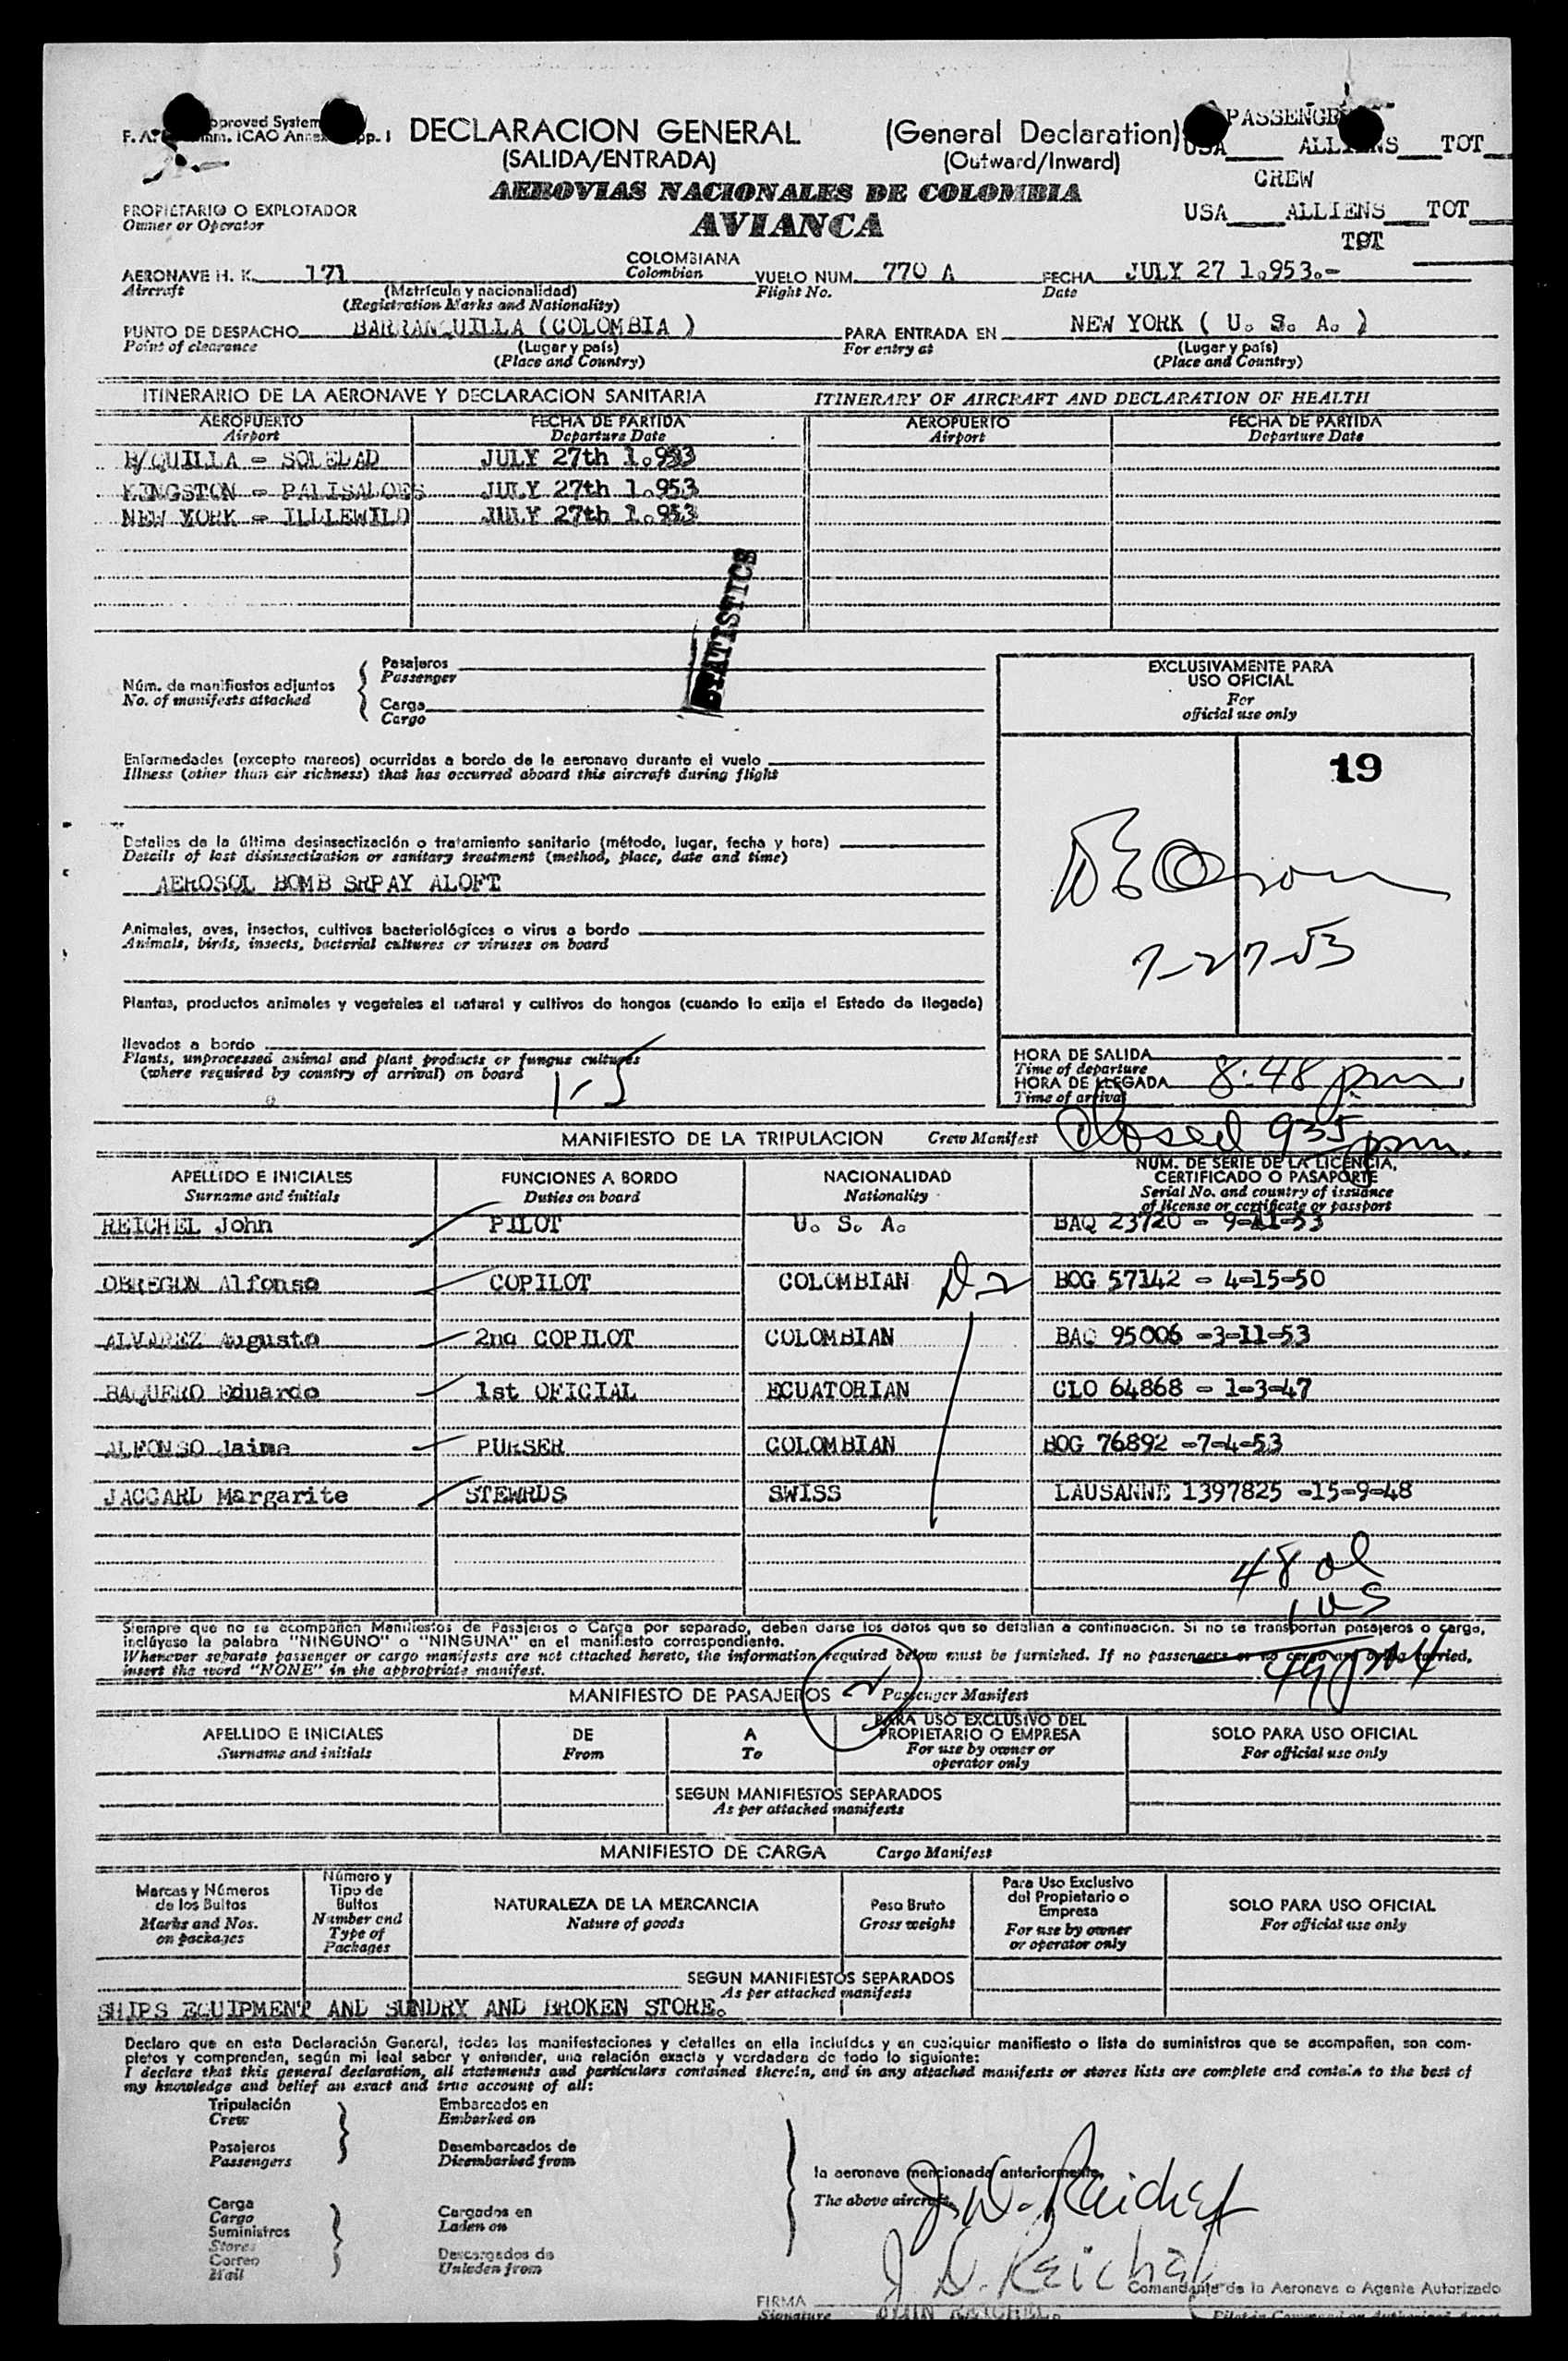 pproved System
F. A. mm. ICAO Annex pp. 1
DECLARACION GENERAL (General Declaration)
(SALIDA/ENTRADA) (Outward/Inward)
PASSENGE
USA ALLIENS TOT
CREW
USA ALLIENS TOT
TOT
AEROVIAS NACIONALES DE COLOMBIA
AVIANCA
PROPIETARIO O EXPLOTADOR
Owner or Operator
AERONAVE H. K. 171 COLOMBIANA VUELO NUM. 770 A FECHA JULY 27 1.953.-
Aircraft (Matrícula y nacionalidad) Colombian Flight No. Date
(Registration Marks and Nationality)
PUNTO DE DESPACHO BARRANQUILLA (COLOMBIA ) PARA ENTRADA EN NEW YORK ( U. S. A. )
Point of clearance (Lugar y país) For entry at (Lugar y país)
(Place and Country) (Place and Country)
ITINERARIO DE LA AERONAVE Y DECLARACION SANITARIA ITINERARY OF AIRCRAFT AND DECLARATION OF HEALTH
AEROPUERTO FECHA DE PARTIDA AEROPUERTO FECHA DE PARTIDA
Airport Departure Date Airport Departure Date
B/QUILLA - SOLEDAD JULY 27th 1.953
KINGSTON - PALISADOES JULY 27th 1.953
NEW YORK - IDLEWILD JULY 27th 1.953
STATISTICS
Núm. de manifiestos adjuntos
No. of manifests attached
Pasajeros
Passenger
Carga
Cargo
EXCLUSIVAMENTE PARA
USO OFICIAL
For
official use only
19
7-27-53
Enfermedades (excepto mareos) ocurridas a bordo de la aeronave durante el vuelo
Illness (other than air sickness) that has occurred aboard this aircraft during flight
Detalles de la última desinsectización o tratamiento sanitario (método, lugar, fecha y hora)
Details of last disinsectization or sanitary treatment (method, place, date and time)
AEROSOL BOMB SRPAY ALOFT
Animales, aves, insectos, cultivos bacteriológicos o virus a bordo
Animals, birds, insects, bacterial cultures or viruses on board
Plantas, productos animales y vegetales al natural y cultivos de hongos (cuando lo exija el Estado de llegada)
llevados a bordo
Plants, unprocessed animal and plant products or fungus cultures
(where required by country of arrival) on board
1-5
HORA DE SALIDA
Time of departure
HORA DE LLEGADA 8:48 pm
Time of arrival
closed 935 pm.
MANIFIESTO DE LA TRIPULACION Crew Manifest
APELLIDO E INICIALES FUNCIONES A BORDO NACIONALIDAD NUM. DE SERIE DE LA LICENCIA, CERTIFICADO O PASAPORTE
Surname and initials Duties on board Nationality Serial No. and country of issuance of license or certificate or passport
REICHEL John PILOT U. S. A. BAQ 23720 - 9-11-53
OBREGON Alfonso COPILOT COLOMBIAN D-2 BOG 57142 - 4-15-50
ALVAREZ Augusto 2nd COPILOT COLOMBIAN BAQ 95006 -3-11-53
BAQUERO Eduardo 1st OFICIAL ECUATORIAN CLO 64868 - 1-3-47
ALFONSO Jaime PURSER COLOMBIAN BOG 76892 -7-4-53
JACCARD Margarite STEWRDS SWISS LAUSANNE 1397825 -15-9-48
48 al
1 US
Siempre que no se acompañen Manifiestos de Pasajeros o Carga por separado, deben darse los datos que se detallan a continuación. Si no se transportan pasajeros o carga,
inclúyase la palabra "NINGUNO" o "NINGUNA" en el manifiesto correspondiente.
Whenever separate passenger or cargo manifests are not attached hereto, the information required below must be furnished. If no passengers or no cargo are being carried,
insert the word "NONE" in the appropriate manifest.
MANIFIESTO DE PASAJEROS Passenger Manifest
APELLIDO E INICIALES DE A PARA USO EXCLUSIVO DEL PROPIETARIO O EMPRESA SOLO PARA USO OFICIAL
Surname and initials From To For use by owner or operator only For official use only
SEGUN MANIFIESTOS SEPARADOS
As per attached manifests
MANIFIESTO DE CARGA Cargo Manifest
Marcas y Números de los Bultos Número y Tipo de Bultos NATURALEZA DE LA MERCANCIA Peso Bruto Para Uso Exclusivo del Propietario o Empresa SOLO PARA USO OFICIAL
Marks and Nos. on packages Number and Type of Packages Nature of goods Gross weight For use by owner or operator only For official use only
SEGUN MANIFIESTOS SEPARADOS
As per attached manifests
SHIPS EQUIPMENT AND SUNDRY AND BROKEN STORE.
Declaro que en esta Declaración General, todas las manifestaciones y detalles en ella incluídos y en cualquier manifiesto o lista de suministros que se acompañen, son com-
pletos y comprenden, según mi leal saber y entender, una relación exacta y verdadera de todo lo siguiente:
I declare that this general declaration, all statements and particulars contained therein, and in any attached manifests or stores lists are complete and contain to the best of
my knowledge and belief an exact and true account of all:
Tripulación Embarcados en
Crew Embarked on
Pasajeros Desembarcados de
Passengers Disembarked from
la aeronave mencionada anteriormente,
The above aircraft,
Carga
Cargo Cargados en
Suministros Laden on
Stores
Correo Descargados de
Mail Unladen from
J. D. Reichel
J D. Reichel
Comandante de la Aeronave o Agente Autorizado
FIRMA
Signature JOHN RAICHEL.